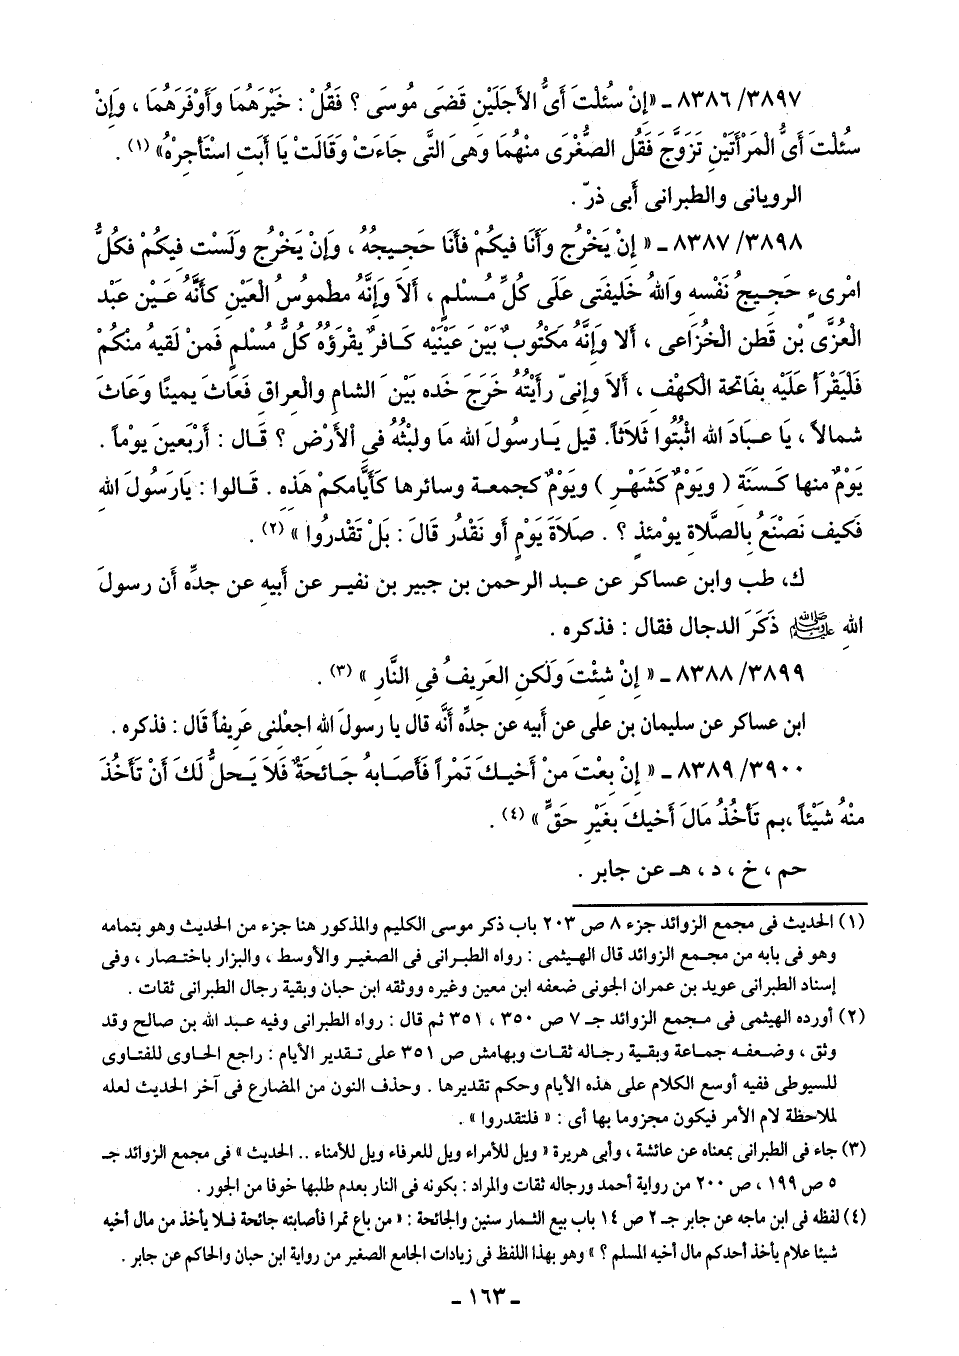 ٣٨٩٧/ ٨٣٨٦ ـ «إنْ سُئلْتَ أىُّ الأجَلَيْنِ قَضَى مُوسَى ؟ فَقُلْ : خَيْرَهُمَا وَأوْفَرَهُمَا ، وَإنْ
سُئلْتَ أىُّ الْمَرْأتَيْنِ تَزَوَّجَ فَقُل الصُّغْرَى مِنْهُمَا وَهِىَ الَّتى جَاءَتْ وَقَالَتْ يَا أبَتِ اسْتَأجِرْهُ» (١) .
الرويانى والطبرانى أبى ذرّ .
٣٨٩٨/ ٨٣٨٧ ـ « إنْ يَخْرُج وَأنَا فيكُمْ فأنَا حَجِيجُهُ ، وَإنْ يَخْرُج وَلَسْت فِيكُمْ فكُلُّ
امْرِىءٍ حَجِيجُ نَفْسِهِ وَاللهُ خَليفَتى عَلَى كُلِّ مُسْلمٍ ، ألاَ وَإنَّهُ مطْمُوسُ العَيْنِ كأنَّهُ عَيْن عَبْد
العُزَّى بْن قَطَن الْخُزَاعى ، ألا وَإنَّهُ مَكْتُوبٌ بَيْنَ عَيْنَيْهِ كَافرٌ يقْرَؤُهُ كُلُّ مُسْلمٍ فَمنْ لَقيهُ منْكُمْ
فَلْيَقْرَأ عَلَيْه بفَاتحَة الْكهْفِ ، ألاَ وإنىّ رَأيْتُهُ خَرَجَ خَده بَيْن َ الشامِ والعراقِ فَعَاثَ يمينًا وَعَاثَ
شمالاً ، يَا عبَادَ الله اثْبُتُوا ثَلاَثاً. قيل يَارسُولَ الله مَا ولبْثُهُ فى الأرْضِ ؟ قَال : أرْبَعينَ يوْماً .
يَوْمٌ منها كَسَنَة ( ويَوْمٌ كَشَهْرٍ ) ويَوْمٌ كجمعة وسائرها كأيَّامكمْ هَذِه . قَالوا : يَارَسُولَ اللهِ
فَكيف نَصْنَعُ بِالصَّلاةِ يوْمئذٍ ؟ . صلاَةَ يَوْمٍ أو نَقْدُر قَالَ : بَلْ تَقْدرُوا » (٢) .
ك، طب وابن عساكر عن عبد الرحمن بن جبير بن نفير عن أبيهِ عن جدِّه أن رسولَ
اللهِ ﷺ ذَكَرَ الدجال فقال : فذكره .
٣٨٩٩/ ٨٣٨٨ ـ « إنْ شئْتَ وَلَكنِ العَريفُ فى النَّارِ » (٣) .
ابن عساكر عن سليمان بن على عن أبيه عن جدِّه أنَّه قال يا رسولَ اللهِ اجعْلنى عَريفاً قَال : فذكره .
٣٩٠٠/ ٨٣٨٩ ـ « إنْ بعْتَ منْ أخيكَ تَمْراً فَأصَابهُ جَائحَةٌ فَلاَ يَحلُّ لَكَ أنْ تَأخُذَ
منْهُ شَيْئاً ،بم تَأخُذُ مَالَ أخيكَ بغَيْرِ حَقٍّ » (٤) .
حم ، خ ، د ، هـ عن جابر .
(١) الحديث فى مجمع الزوائد جزء ٨ ص ٢٠٣ باب ذكر موسى الكليم والمذكور هنا جزء من الحديث وهو بتمامه
وهو فى بابه من مجمع الزوائد قال الهيثمى : رواه الطبرانى فى الصغير والأوسط ، والبزار باختصار ، وفى
إسناد الطبرانى عويد بن عمران الجونى ضعفه ابن معين وغيره ووثقه ابن حبان وبقية رجال الطبرانى ثقات .
(٢) أورده الهيثمى فى مجمع الزوائد جـ ٧ ص ٣٥٠ ، ٣٥١ ثم قال : رواه الطبرانى وفيه عبد الله بن صالح وقد
وثق ، وضعفه جماعة وبقية رجاله ثقات وبهامش ص ٣٥١ على تقدير الأيام : راجع الحاوى للفتاوى
للسيوطى ففيه أوسع الكلام على هذه الأيام وحكم تقديرها . وحذف النون من المضارع فى آخر الحديث لعله
لملاحظة لام الأمر فيكون مجزوما بها أى : « فلتقدروا » .
(٣) جاء فى الطبرانى بمعناه عن عائشة ، وأبى هريرة « ويل للأمراء ويل للعرفاء ويل للأمناء .. الحديث » فى مجمع الزوائد جـ
٥ ص ١٩٩ ، ص ٢٠٠ من رواية أحمد ورجاله ثقات والمراد : بكونه فى النار بعدم طلبها خوفا من الجور .
(٤) لفظه فى ابن ماجه عن جابر جـ ٢ ص ١٤ باب بيع الثمار سنين والجائحة : « من باع تمرا فأصابته جائحة فلا يأخذ من مال أخيه
شيئا علام يأخذ أحدكم مال أخيه المسلم ؟ » وهو بهذا اللفظ فى زيادات الجامع الصغير من رواية ابن حبان والحاكم عن جابر .
ـ ١٦٣ ـ